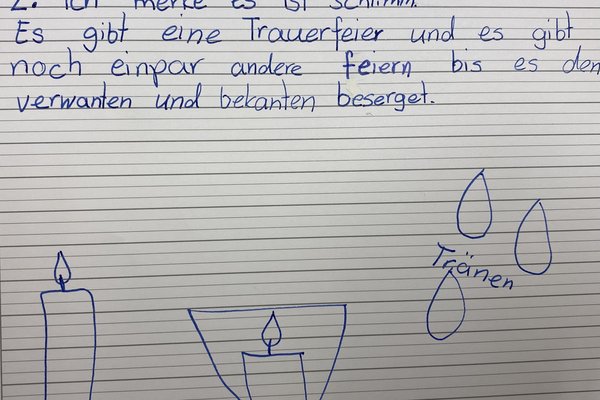 2. Ich merke es ist schlimm.
Es gibt eine Trauerfeier und es gibt
noch einpar andere feiern bis es den
verwanten und bekanten beserget.
Tränen